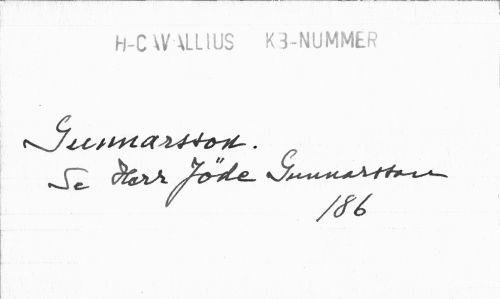 H-CAVALLIUS KB-NUMMER
Gunnarsson.
Se Herr Jöde Gunnarsson
186